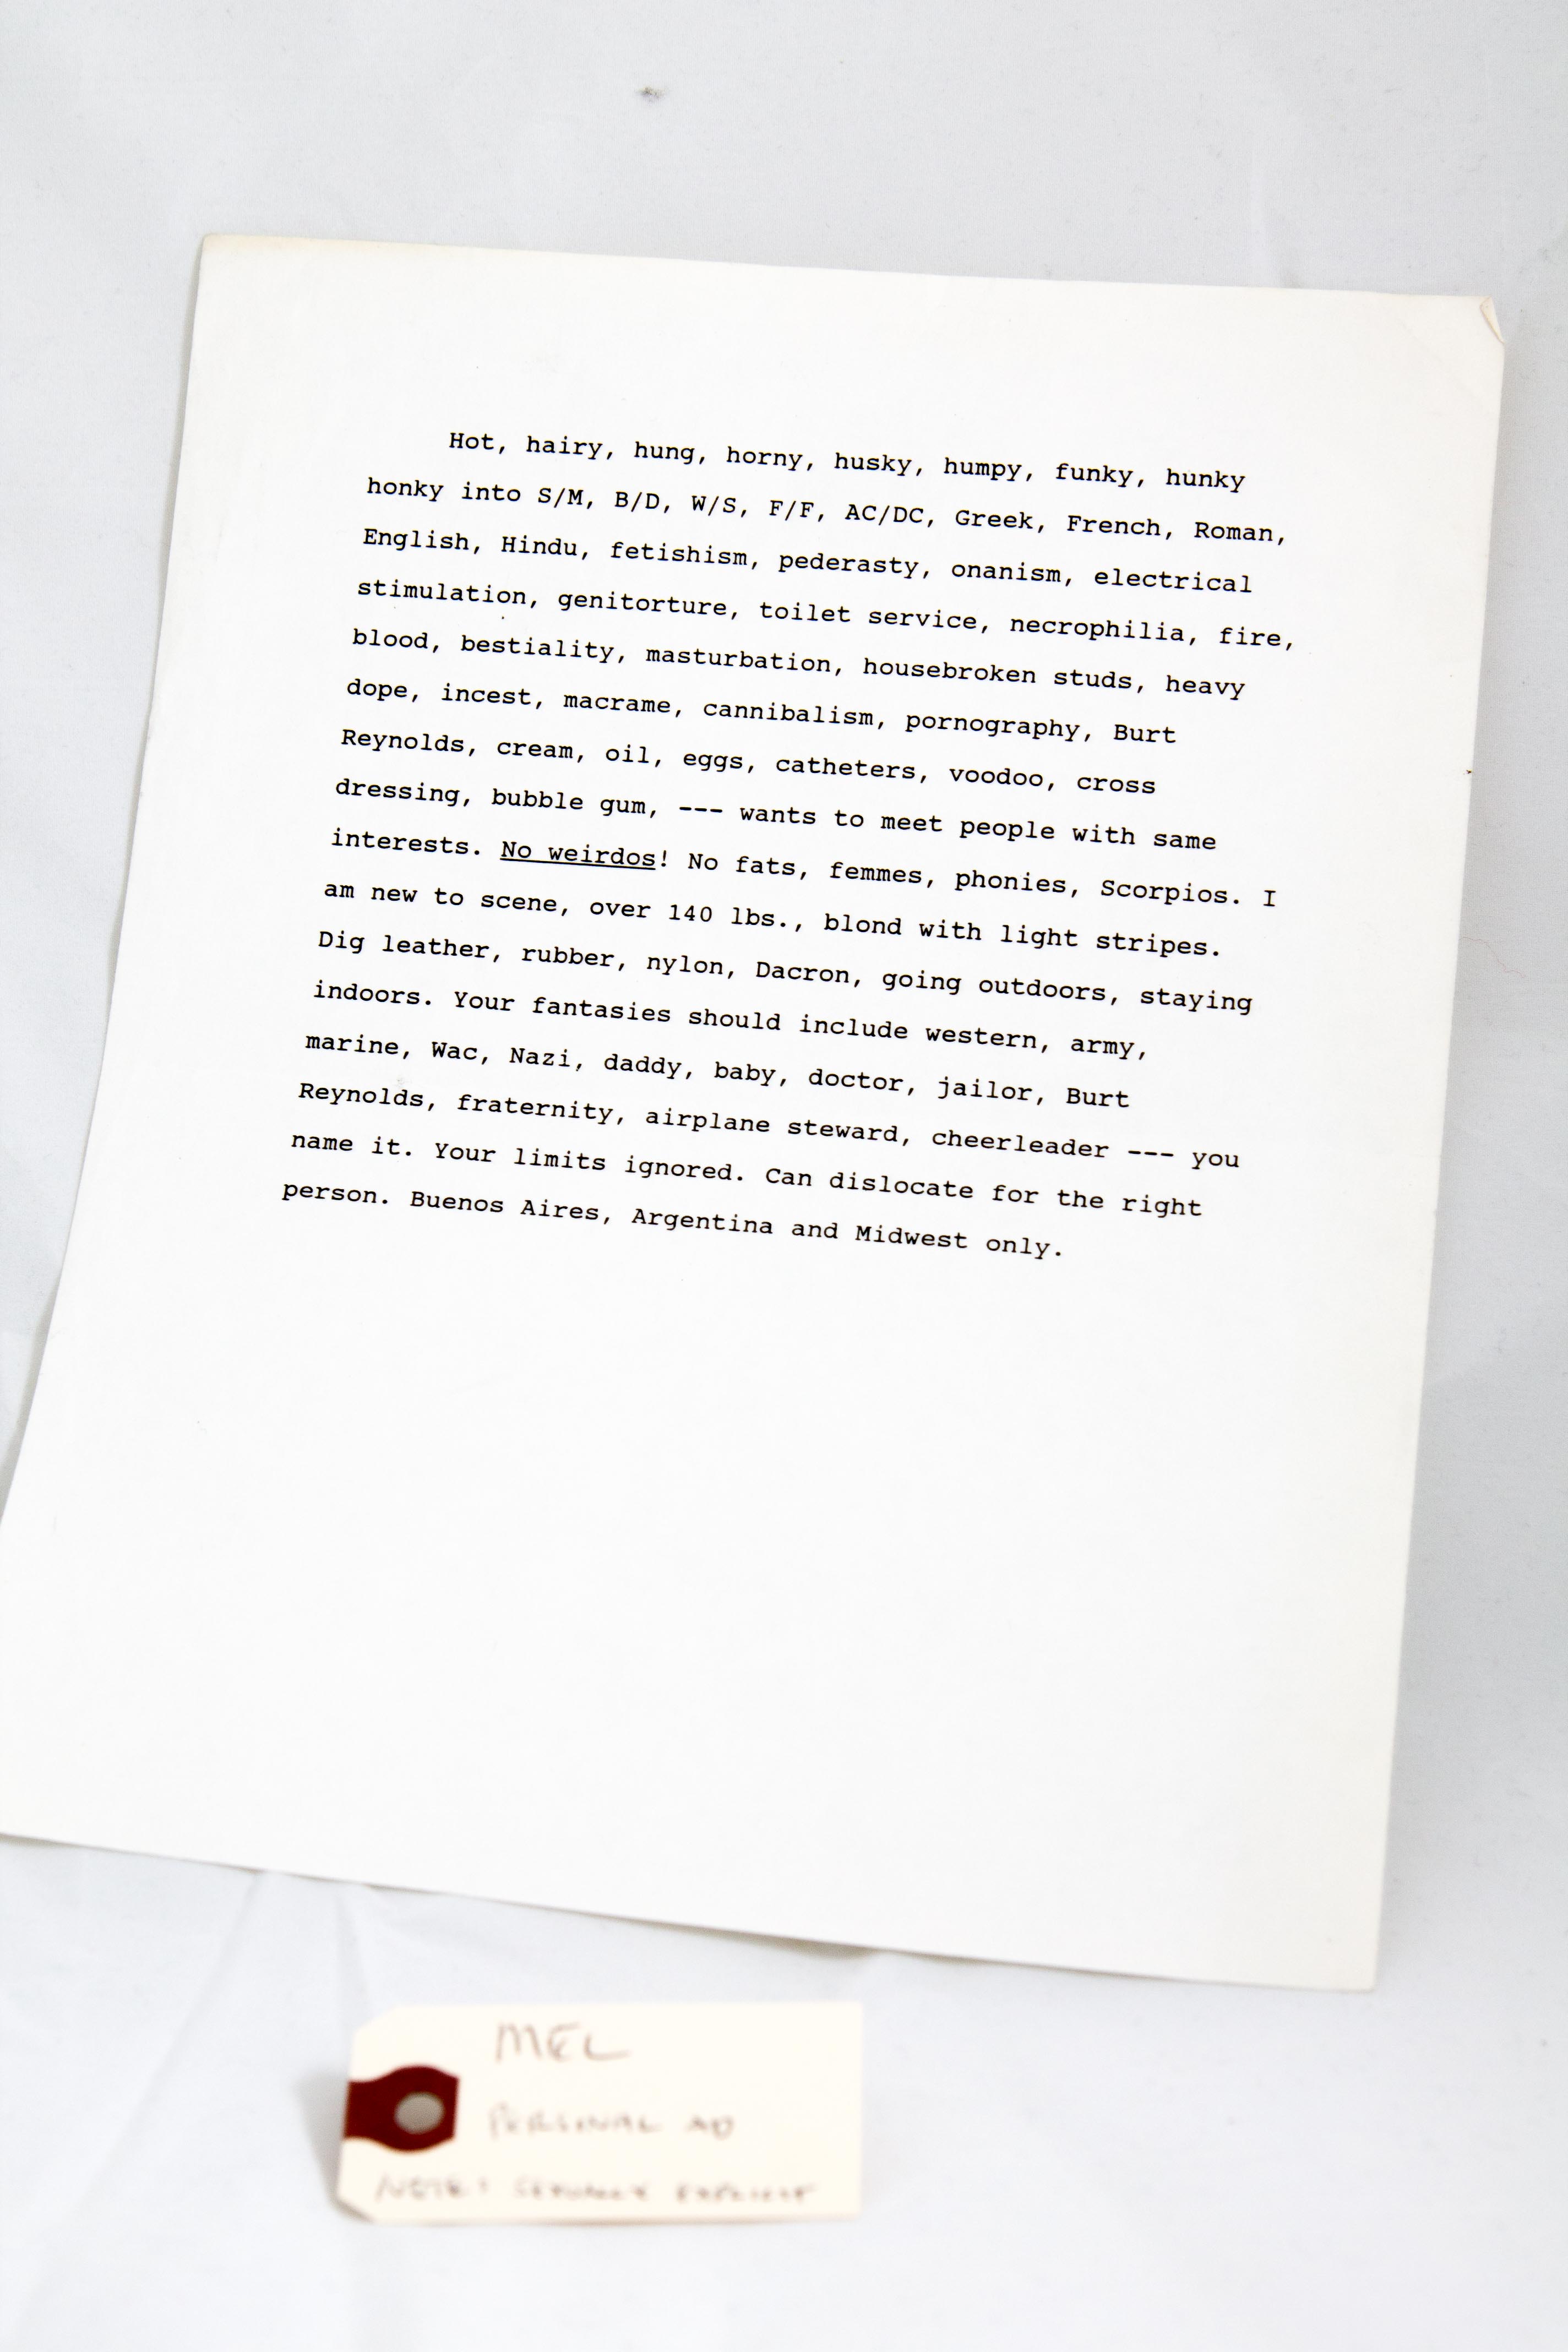 Hot, hairy, hung, horny, husky, humpy, funky, hunky
honky into S/M, B/D, W/S, F/F, AC/DC, Greek, French, Roman,
English, Hindu, fetishism, pederasty, onanism, electrical
stimulation, genitorture, toilet service, necrophilia, fire,
blood, bestiality, masturbation, housebroken studs, heavy
dope, incest, macrame, cannibalism, pornography, Burt
Reynolds, cream, oil, eggs, catheters, voodoo, cross
dressing, bubble gum, --- wants to meet people with same
interests. No weirdos! No fats, femmes, phonies, Scorpios. I
am new to scene, over 140 lbs., blond with light stripes.
Dig leather, rubber, nylon, Dacron, going outdoors, staying
indoors. Your fantasies should include western, army,
marine, Wac, Nazi, daddy, baby, doctor, jailor, Burt
Reynolds, fraternity, airplane steward, cheerleader --- you
name it. Your limits ignored. Can dislocate for the right
person. Buenos Aires, Argentina and Midwest only.
MEL
PERSONAL AD
NOTE: SEXUALLY EXPLICIT